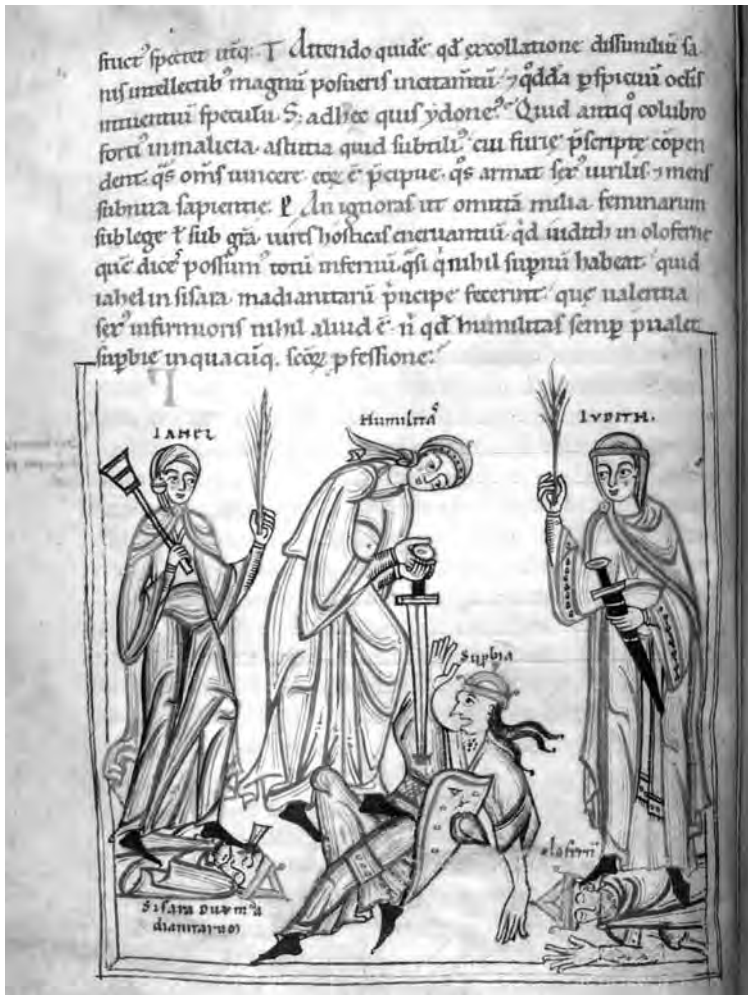 fruct᷒ spectet utiq;. T Attendo quidē qd̄ ex collatione dissimiliū sa
nis intellectib᷒ magnū posueris incitam̄tū. ⁊ qd̄dā pspicuū oclis
intuentiū speculū. S; adhec quis ydone᷒. Quid antiq̊ colubro
forti᷒ in malicia. astutia quid subtili᷒. cui furie p̄scripte cōpen
dent. qs̄ om̄s uincere. eaꝝ ē p̄cipue. qs̄ armat sex᷒ uirilis. ⁊ mens
subnixa sapientie. P An ignoras ut omittā milia feminarum
sub lege ł sub gr̄a. uires hosticas eneruantiū. qd̄ iudith in oloferne
quē dice᷒ possum᷒ totū infernū. qs̄i q̇ nihil supriū habeat. quid
iahel in sisara madianitarū p̊ncipe fecerint. que ualentia
sex᷒ infirmioris nihil aliud ē. n̄ qd̄ humilitas semp p̄ualet
supbie in quacūq. sexꝝ pfessione.
T
IAHEL
Humilita᷒
IVDITH.
Supbia
olofern̄
Sisara dux ma
dianitarum